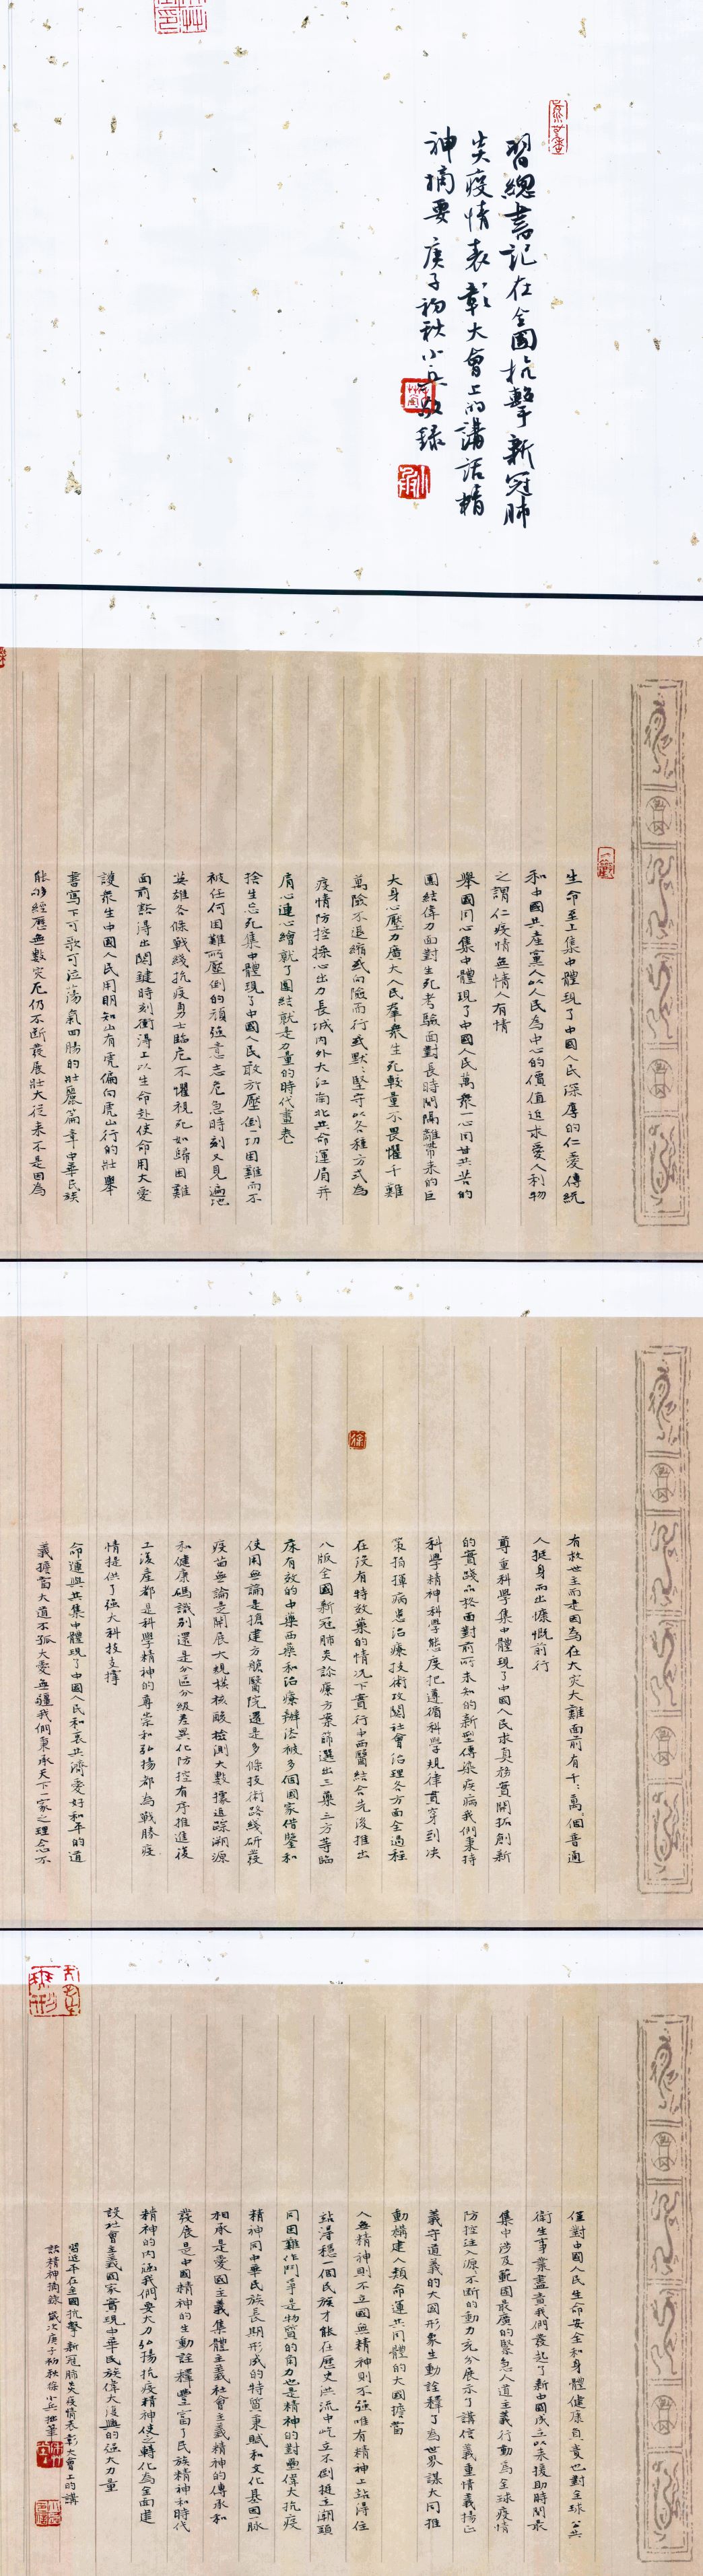 習總書記在全國抗擊新冠肺
炎疫情表彰大會上的講話精
神摘要 庚子初秋小兵敬録
生命至上集中體現了中國人民深厚的仁愛傳統
和中國共產黨人以人民為中心的價值追求愛人利物
之謂仁疫情無情人有情
舉國同心集中體現了中國人民萬衆一心同甘共苦的
團結偉力面對生死考驗面對長時間隔離帶来的巨
大身心壓力廣大人民羣衆生死較量不畏懼千難
萬險不退縮或向險而行或默〻堅守以各種方式為
疫情防控操心出力長城内外大江南北共命運肩并
肩心連心繪就了團結就是力量的時代畫卷
捨生忘死集中體現了中國人民敢於壓倒一切困難而不
被任何困難所壓倒的頑强意志危急時刻又見遍地
英雄各條戰綫抗疫勇士臨危不懼視死如歸困難
面前豁得出關鍵時刻衝得上以生命赴使命用大愛
護衆生中國人民用明知山有虎偏向虎山行的壯舉
書寫下可歌可泣蕩氣回腸的壯麗篇章中華民族
能够經歷無數灾厄仍不斷發展壯大從来不是因為
有救世主而是因為在大灾大難面前有千〻萬〻個普通
人挺身而出慷慨前行
尊重科學集中體現了中國人民求真務實開拓創新
的實踐品格面對前所未知的新型傳染疾病我們秉持
科學精神科學態度把遵循科學規律貫穿到决
策指揮病患治療技術攻關社會治理各方面全過程
在没有特效藥的情况下實行中西醫結合先後推出
八版全國新冠肺炎診療方案篩選出三藥三方等臨
床有效的中藥西藥和治療辦法被多個國家借鑒和
使用無論是搶建方艙醫院還是多條技術路綫研發
疫苗無論是開展大規模核酸檢測大數據追踪溯源
和健康碼識别還是分區分級差異化防控有序推進復
工復産都是科學精神的尊崇和弘揚都為戰勝疫
情提供了强大科技支撑
命運與共集中體現了中國人民和衷共濟愛好和平的道
義擔當大道不孤大愛無疆我們秉承天下一家之理念不
僅對中國人民生命安全和身體健康負責也對全球公共
衛生事業盡責我們發起了新中國成立以来援助時間最
集中涉及範圍最廣的緊急人道主義行動為全球疫情
防控注入源不斷的動力充分展示了講信義重情義揚正
義守道義的大國形象生動詮釋了為世界謀大同推
動構建人類命運共同體的大國擔當
人無精神則不立國無精神則不强唯有精神上站得住
站得穩一個民族才能在歷史洪流中屹立不倒挺立潮頭
同困難作鬥爭是物質的角力也是精神的對壘偉大抗疫
精神同中華民族長期形成的特質禀賦和文化基因一脈
相承是愛國主義集體主義社會主義精神的傳承和
發展是中國精神的生動詮釋豐富了民族精神和時代
精神的内涵我們要大力弘揚抗疫精神使之轉化為全面建
設社會主義國家實現中華民族偉大復興的强大力量
習近平在全國抗擊新冠肺炎疫情表彰大會上的講
話精神摘録 歲次庚子初秋徐小兵拙筆